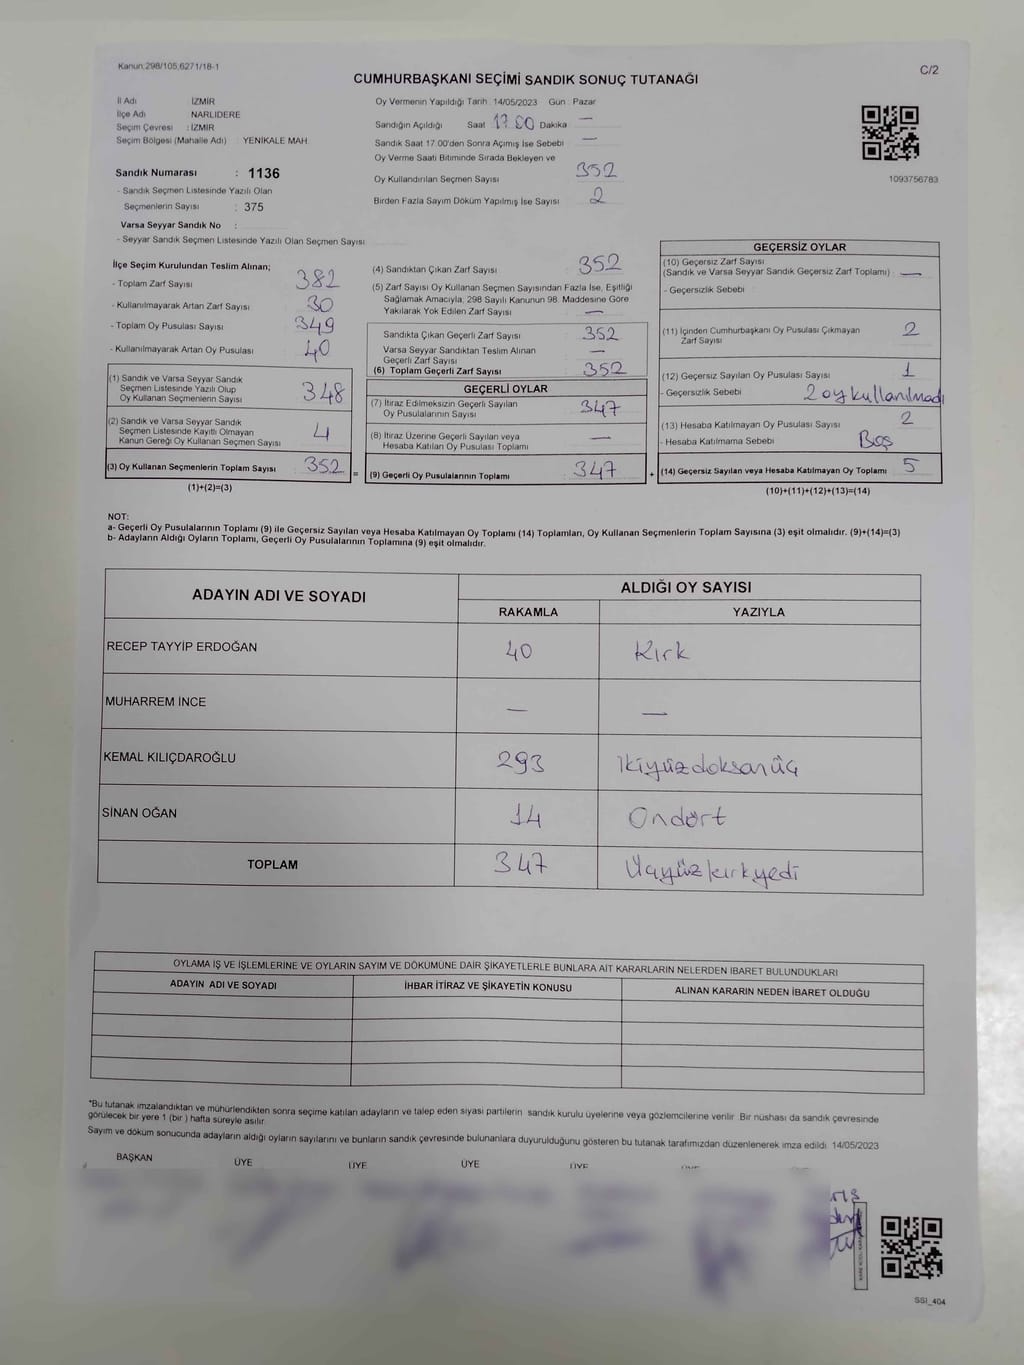 Kanun:298/105,6271/18-1
C/2
CUMHURBAŞKANI SEÇİMİ SANDIK SONUÇ TUTANAĞI
İl Adı : İZMİR
İlçe Adı : NARLIDERE
Seçim Çevresi : İZMİR
Seçim Bölgesi (Mahalle Adı) : YENİKALE MAH.
Sandık Numarası : 1136
- Sandık Seçmen Listesinde Yazılı Olan
Seçmenlerin Sayısı : 375
Varsa Seyyar Sandık No :
- Seyyar Sandık Seçmen Listesinde Yazılı Olan Seçmen Sayısı
Oy Vermenin Yapıldığı Tarih : 14/05/2023 Gün : Pazar
Sandığın Açıldığı Saat 17 00 Dakika —
Sandık Saat 17.00'den Sonra Açımış İse Sebebi —
Oy Verme Saati Bitiminde Sırada Bekleyen ve
Oy Kullandırılan Seçmen Sayısı 352
Birden Fazla Sayım Döküm Yapılmış İse Sayısı 2
1093756783
İlçe Seçim Kurulundan Teslim Alınan;
- Toplam Zarf Sayısı 382
- Kullanılmayarak Artan Zarf Sayısı 30
- Toplam Oy Pusulası Sayısı 349
- Kullanılmayarak Artan Oy Pusulası 40
(1) Sandık ve Varsa Seyyar Sandık
Seçmen Listesinde Yazılı Olup
Oy Kullanan Seçmenlerin Sayısı 348
(2) Sandık ve Varsa Seyyar Sandık
Seçmen Listesinde Kayıtlı Olmayan
Kanun Gereği Oy Kullanan Seçmen Sayısı 4
(3) Oy Kullanan Seçmenlerin Toplam Sayısı 352
(1)+(2)=(3)
(4) Sandıktan Çıkan Zarf Sayısı 352
(5) Zarf Sayısı Oy Kullanan Seçmen Sayısından Fazla İse, Eşitliği
Sağlamak Amacıyla, 298 Sayılı Kanunun 98. Maddesine Göre
Yakılarak Yok Edilen Zarf Sayısı —
Sandıkta Çıkan Geçerli Zarf Sayısı 352
Varsa Seyyar Sandıktan Teslim Alınan
Geçerli Zarf Sayısı —
(6) Toplam Geçerli Zarf Sayısı 352
GEÇERLİ OYLAR
(7) İtiraz Edilmeksizin Geçerli Sayılan
Oy Pusulalarının Sayısı 347
(8) İtiraz Üzerine Geçerli Sayılan veya
Hesaba Katılan Oy Pusulası Toplamı —
= (9) Geçerli Oy Pusulalarının Toplamı 347
GEÇERSİZ OYLAR
(10) Geçersiz Zarf Sayısı
(Sandık ve Varsa Seyyar Sandık Geçersiz Zarf Toplamı) —
- Geçersizlik Sebebi
(11) İçinden Cumhurbaşkanı Oy Pusulası Çıkmayan
Zarf Sayısı 2
(12) Geçersiz Sayılan Oy Pusulası Sayısı 1
- Geçersizlik Sebebi 2 oy kullanılmadı
(13) Hesaba Katılmayan Oy Pusulası Sayısı 2
- Hesaba Katılmama Sebebi Boş
+ (14) Geçersiz Sayılan veya Hesaba Katılmayan Oy Toplamı 5
(10)+(11)+(12)+(13)=(14)
NOT:
a- Geçerli Oy Pusulalarının Toplamı (9) ile Geçersiz Sayılan veya Hesaba Katılmayan Oy Toplamı (14) Toplamları, Oy Kullanan Seçmenlerin Toplam Sayısına (3) eşit olmalıdır. (9)+(14)=(3)
b- Adayların Aldığı Oyların Toplamı, Geçerli Oy Pusulalarının Toplamına (9) eşit olmalıdır.
ADAYIN ADI VE SOYADI ALDIĞI OY SAYISI
RAKAMLA YAZIYLA
RECEP TAYYİP ERDOĞAN 40 Kırk
MUHARREM İNCE — —
KEMAL KILIÇDAROĞLU 293 İkiyüzdoksanüç
SİNAN OĞAN 14 Ondört
TOPLAM 347 Üçyüzkırkyedi
OYLAMA İŞ VE İŞLEMLERİNE VE OYLARIN SAYIM VE DÖKÜMUNE DAİR ŞİKAYETLERLE BUNLARA AİT KARARLARIN NELERDEN İBARET BULUNDUKLARI
ADAYIN ADI VE SOYADI İHBAR İTİRAZ VE ŞİKAYETİN KONUSU ALINAN KARARIN NEDEN İBARET OLDUĞU
*Bu tutanak imzalandıktan ve mühürlendikten sonra seçime katılan adayların ve talep eden siyasi partilerin sandık kurulu üyelerine veya gözlemcilerine verilir. Bir nüshası da sandık çevresinde
görülecek bir yere 1 (bir) hafta süreyle asılır.
Sayım ve döküm sonucunda adayların aldığı oyların sayılarını ve bunların sandık çevresinde bulunanlara duyurulduğunu gösteren bu tutanak tarafımızdan düzenlenerek imza edildi. 14/05/2023
BAŞKAN ÜYE ÜYE ÜYE ÜYE
SSI_404